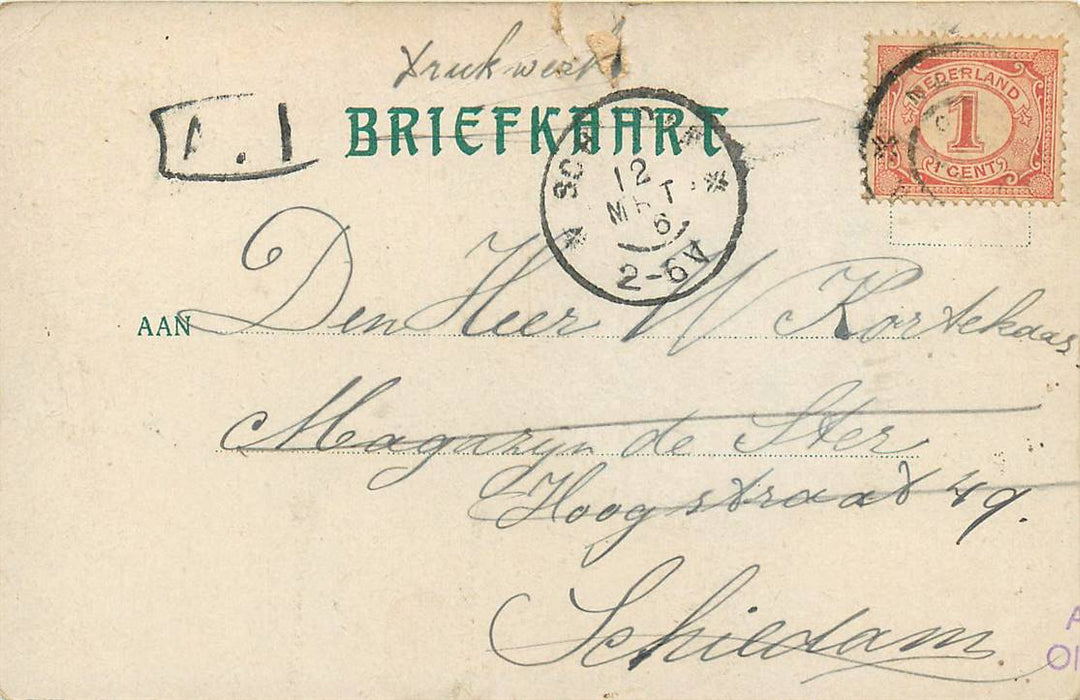 Drukwerk
A. 1
BRIEFKAART
NEDERLAND
1
1 CENT
12
MRT
6
2-6V
AAN Den Heer W Kortekaas
Magazijn de Ster
Hoogstraat 49.
Schiedam